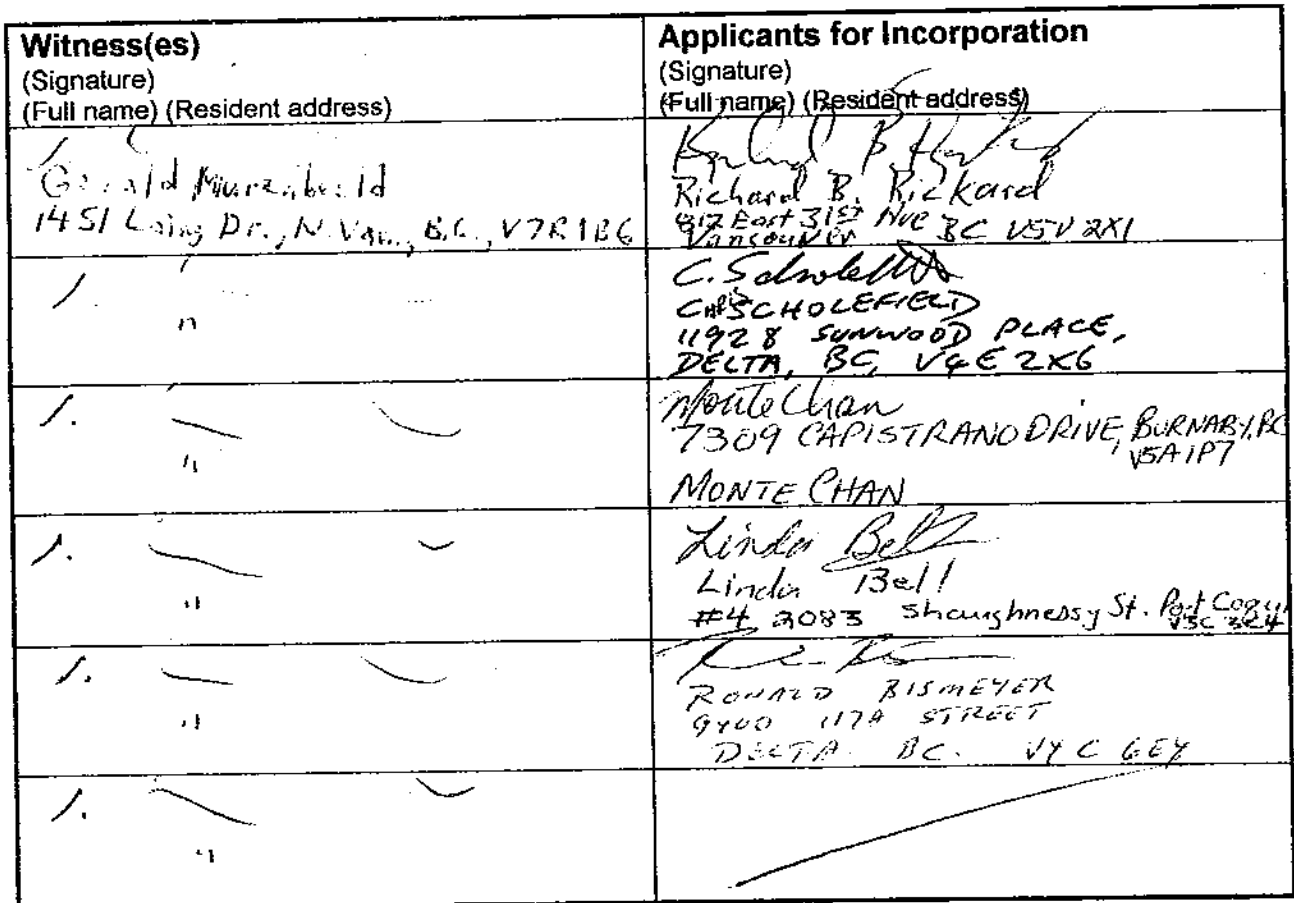 Witness(es)
(Signature)
(Full name) (Resident address)
Applicants for Incorporation
(Signature)
(Full name) (Resident address)
Gerald
1451 Laing Dr., N. Van., B.C., V7R1B6
Richard B. Rickard
812 East 31st Ave
Vancouver BC V5V 2X1
"
CHRIS SCHOLEFIELD
11928 SUNWOOD PLACE,
DELTA, BC, V4E 2X6
"
Monte Chan
7309 CAPISTRANO DRIVE, BURNABY, BC
V5A 1P7
MONTE CHAN
"
Linda Bell
Linda Bell
#4 2083 Shaughnessy St. Port Coqu
V3C 3E4
"
RONALD BISMEYER
9400 117A STREET
DELTA BC. V4C 6E4
"